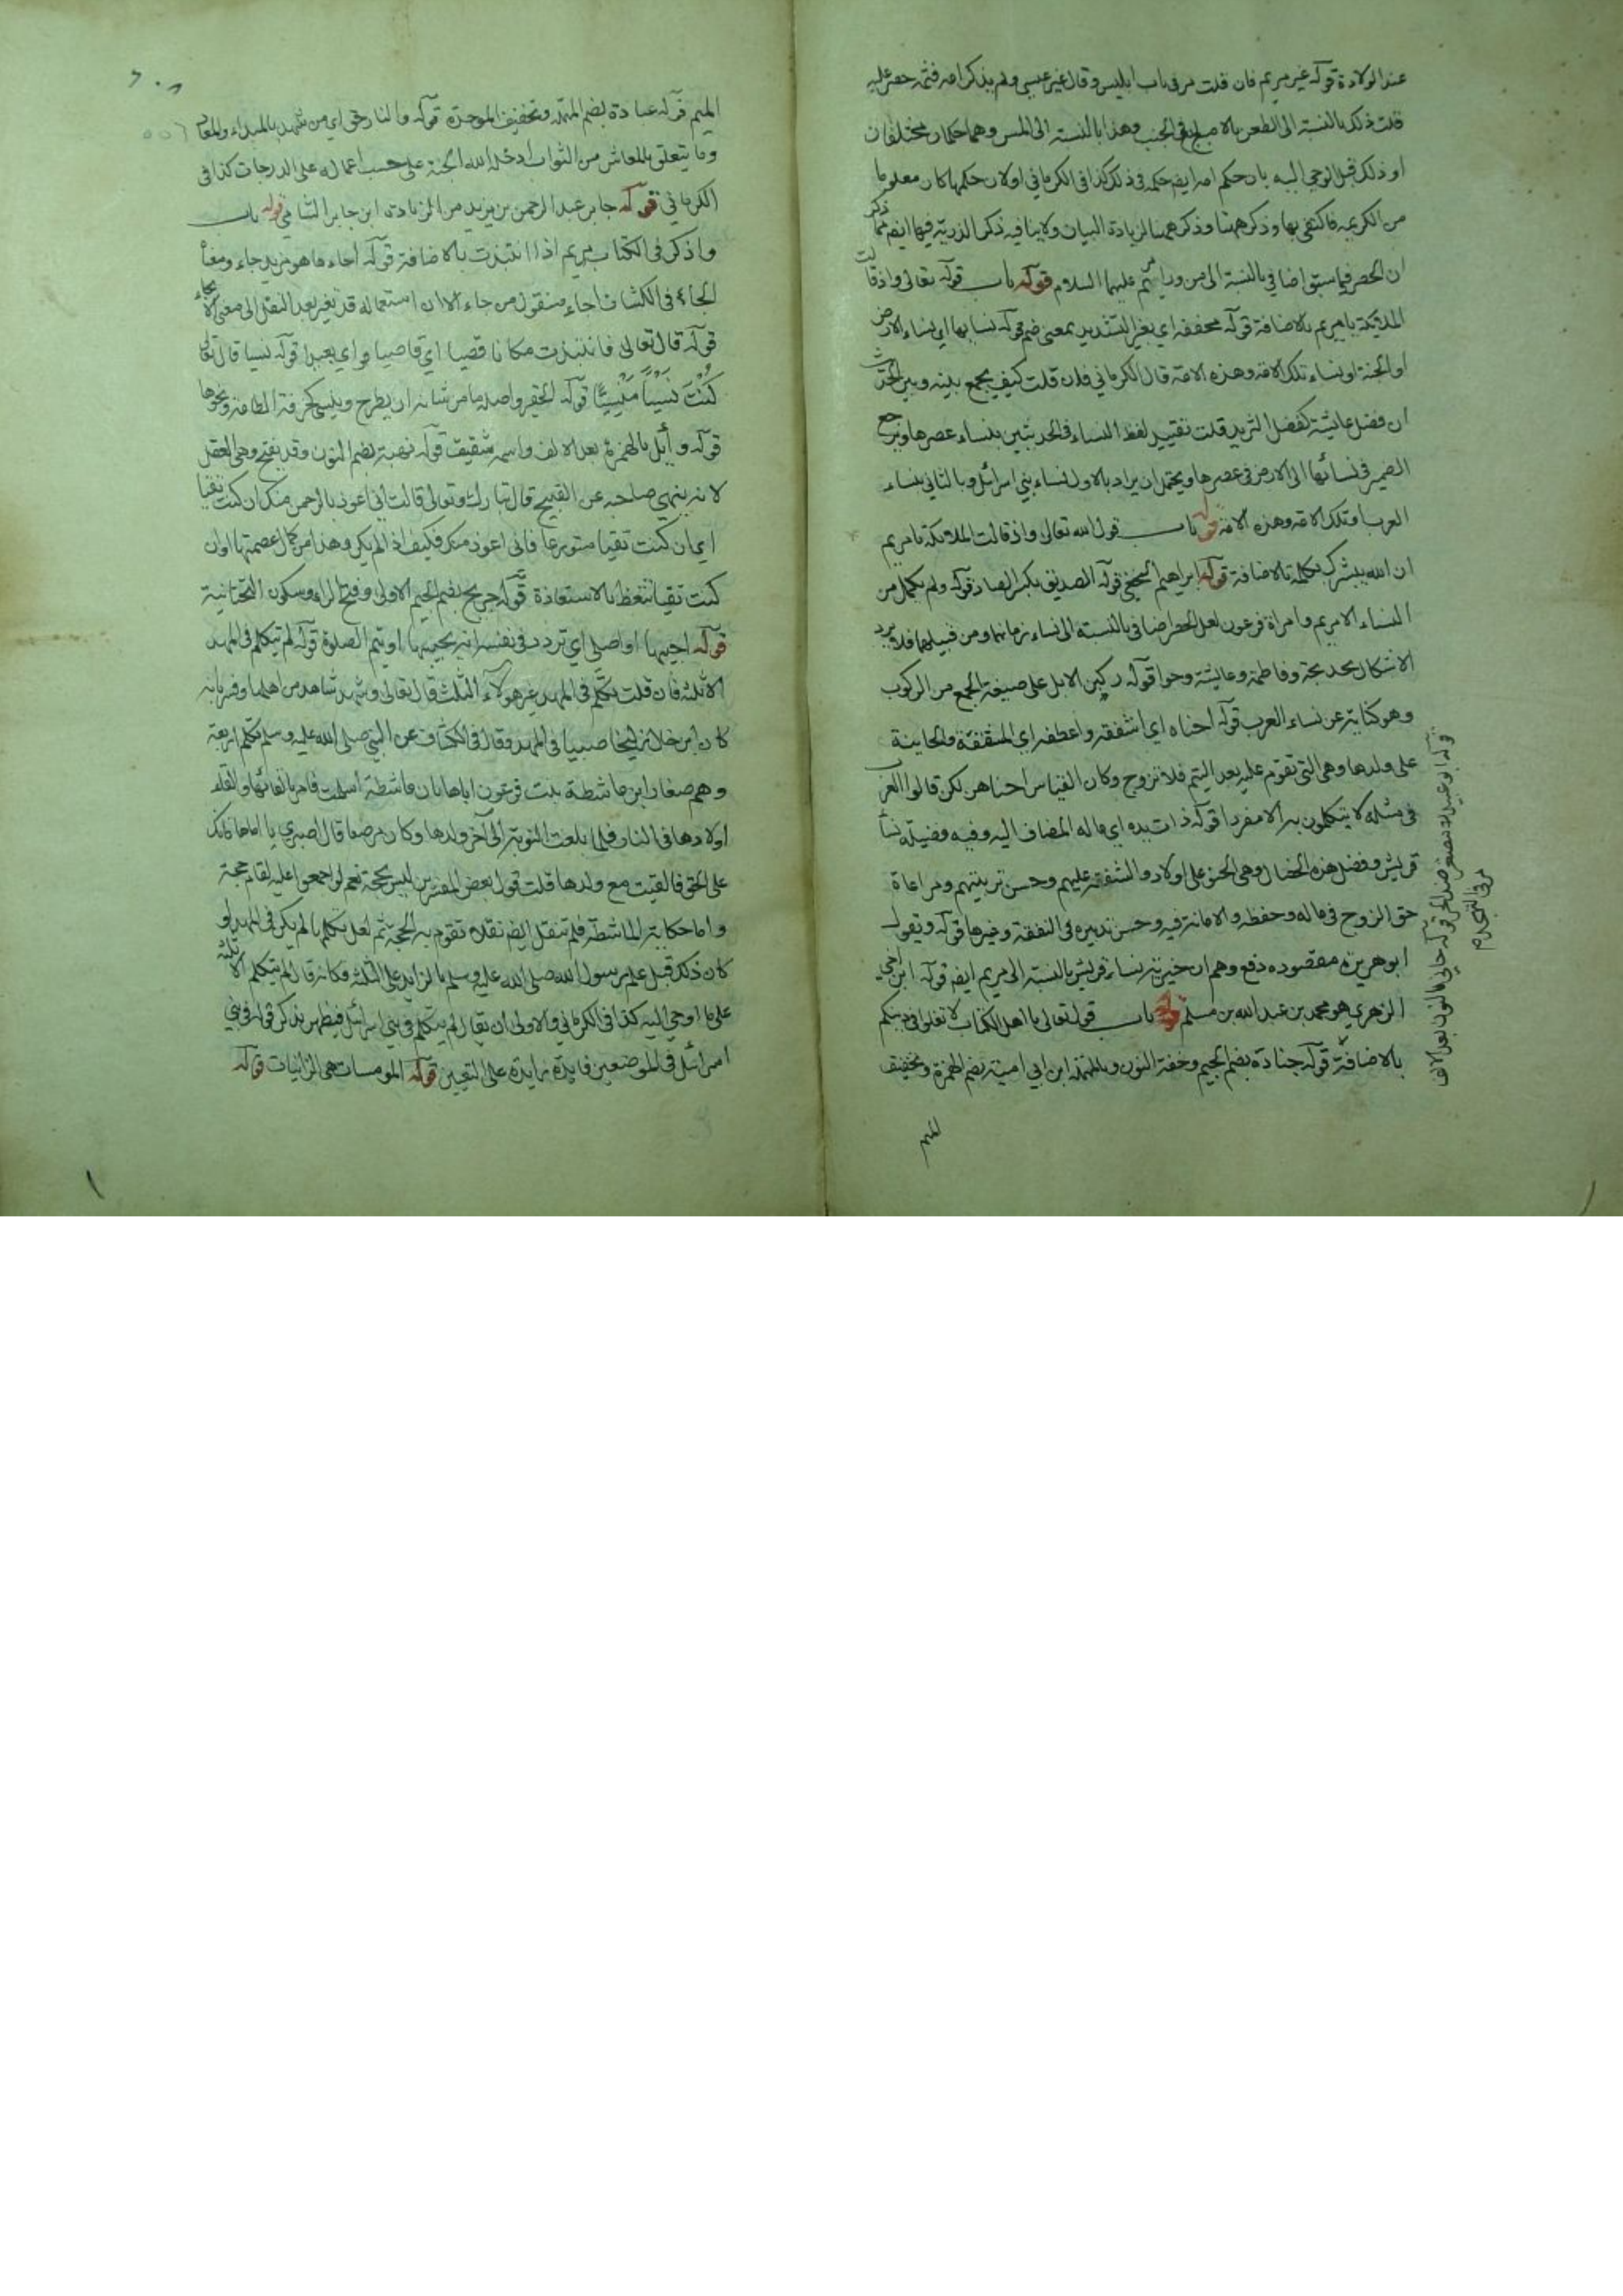 عند الولادة قوله غير مريم فان قلت مر فى باب ابليس وقال غير عيسى ولم يذكر امه فثمه حصر عليه
قلت ذلك بالنسبة الى الطعن بالاصبع فى الجنب وهذا بالنسبة الى المس وهما حكمان مختلفان
او ذلك قبل الوحى اليه بان حكم امه ايضا حكمه فى ذلك كذا فى الكرمانى اولان حكمها كان معلوما
من الكريمه فاكتفى بها وذكر ههنا لزيادة البيان ولا ينافيه ذكر الذرية فيها ايضا
ان الحصر فيما سبق اضافى بالنسبة الى عليهما السلام قوله باب قوله تعالى واذ قالت
الملائكة يا مريم بالاضافة قوله مخففه اى بغير التشديد بمعنى ضم قوله نسائها اى نساء الارض
او الجنة او نساء تلك الامة وهذه الامة قال الكرمانى فان قلت كيف يجمع بينه وبين الحديث
ان فضل عايشة كفضل الثريد قلت تقييد لفظ النساء فى الحديثين بنساء عصرها ويرجع
الضمير فى نسائها الى الارض فى عصرها ويحتمل ان يراد بالاول نساء بنى اسرائل وبالثانى نساء
العرب او تلك الامة وهذه الامة قوله باب قول الله تعالى واذ قالت الملائكة يا مريم
ان الله يبشرك بكلمة بالاضافة قوله ابراهيم النخعى قوله الصديق بكسر الصاد قوله ولم يكمل من
النساء الا مريم وامراة فرعون لعل الحصر اضافى بالنسبة الى نساء زمانهما ومن قبيلهما فلا يرد
الاشكال بخديجة وفاطمة وعايشة وحوا قوله ركبن الابل على صيغة الجمع من الركوب
وهو كناية عن نساء العرب قوله احناه اى اشفقه واعطفه اى المشفقة والحانية
على ولدها وهى التى تقوم عليه بعد اليتم فلا تزوج وكان القياس احناهن لكن قالوا العرب
فى مثله لا يتكلمون به الا مفردا قوله ذات يده اى ماله المضاف اليه وفيه فضيلة نسأ
قريش وفضل هذه الخصال وهى الحنو على اولاد والشفقة عليهم وحسن تربيتهم ومراعاة
حق الزوج فى ماله وحفظه والامانة فيه وحسن تدبيره فى النفقة وغيرها قوله ويقول
ابو هريرة مقصوده دفع وهم ان خيرية نساء قريش بالنسبة الى مريم ايضا قوله ابن اخى
الزهرى هو محمد بن عبد الله بن مسلم قوله باب قوله تعالى يا اهل الكتاب لا تغلوا فى دينكم
بالاضافة قوله جنادة بضم الجيم وخفة النون وبالمهملة ابن ابى امية بضم الهمزة وتخفيف
الميم
الميم قوله عبادة بضم المهملة وتخفيف الموحدة قوله والنار حق اى من شهد بالمبداء والمعاد
وما يتعلق بالمعاش من الثواب ادخله الله الجنة على حسب اعماله على الدرجات كذا فى
الكرمانى قوله جابر عبد الرحمن بن يزيد من الزيادة ابن جابر الشامى قوله باب
واذكر فى الكتاب مريم اذ انتبذت بالاضافة قوله اجاء ها هو مزيد جاء ومعنا
الجاء فى الكشاف اجاء منقول من جاء الا ان استعماله قد تغير بعد النقل الى معنى الالجاء
قوله قال تعالى فانتبذت مكانا قصيا اى قاصيا اى بعيدا قوله نسيا قال تعالى
كُنْتُ نَسْياً مَنْسِيًّا قوله الحقير واصله ما من شانه ان يطرح وينسى كخرقة الطامث ونحوها
قوله وايل بالهمزة بعد الالف واسمه شقيق قوله نهية بضم النون وقد يفتح وهى العقل
لانه ينهى صاحبه عن القبيح قال تبارك وتعالى قالت انى اعوذ بالرحمن منك ان كنت تقيا
اى ان كنت تقيا متورعا فانى اعوذ منك فكيف اذا لم يكن وهذا من كمال عصمتها او ان
كنت تقيا تتعظ بالاستعاذة قوله جريج بضم الجيم الاولى وفتح الراء وسكون التحتانية
قوله اجيبها او اصلى اى تردد فى نفسه انه يجيبها او يتم الصلوة قوله لم يتكلم فى المهد
الا ثلثه فان قلت تكلم فى المهد غير هولاء الثلث قال تعالى وشهد شاهد من اهلها وقيل بانه
كان ابن خال زليخا صبيا فى المهد وقال فى الكشاف عن النبى صلى الله عليه وسلم تكلم اربعة
وهم صغار ابن ماشطة بنت فرعون اباها بان ماشطة اسلمت فامر بالقائها والقاء
اولادها فى النار فلما بلغت النوبة الى آخر ولدها وكان مرضعا قال اصبرى يا اماها فانك
على الحق فالقيت مع ولدها قلت قول بعض المفسرين ليس بحجة نعم لو اجمعوا عليه لقام حجة
واما حكاية الماشطة فلم تنقل ايضا نقلا تقوم به الحجة ثم لعل تكلمها لم يكن فى المهد او
كان ذلك قبل علم رسول الله صلى الله عليه وسلم بالزايد على الثلثة فكانه قال لم يتكلم الا ثلثة
على ما اوحى اليه كذا فى الكرمانى والاولى ان يقال لم يتكلم فى بنى اسرائل فيظهر بذكر قوله فى بنى
اسرائل فى الموضعين فايدة زايدة على التعيين قوله المومسات هى الزانيات قوله